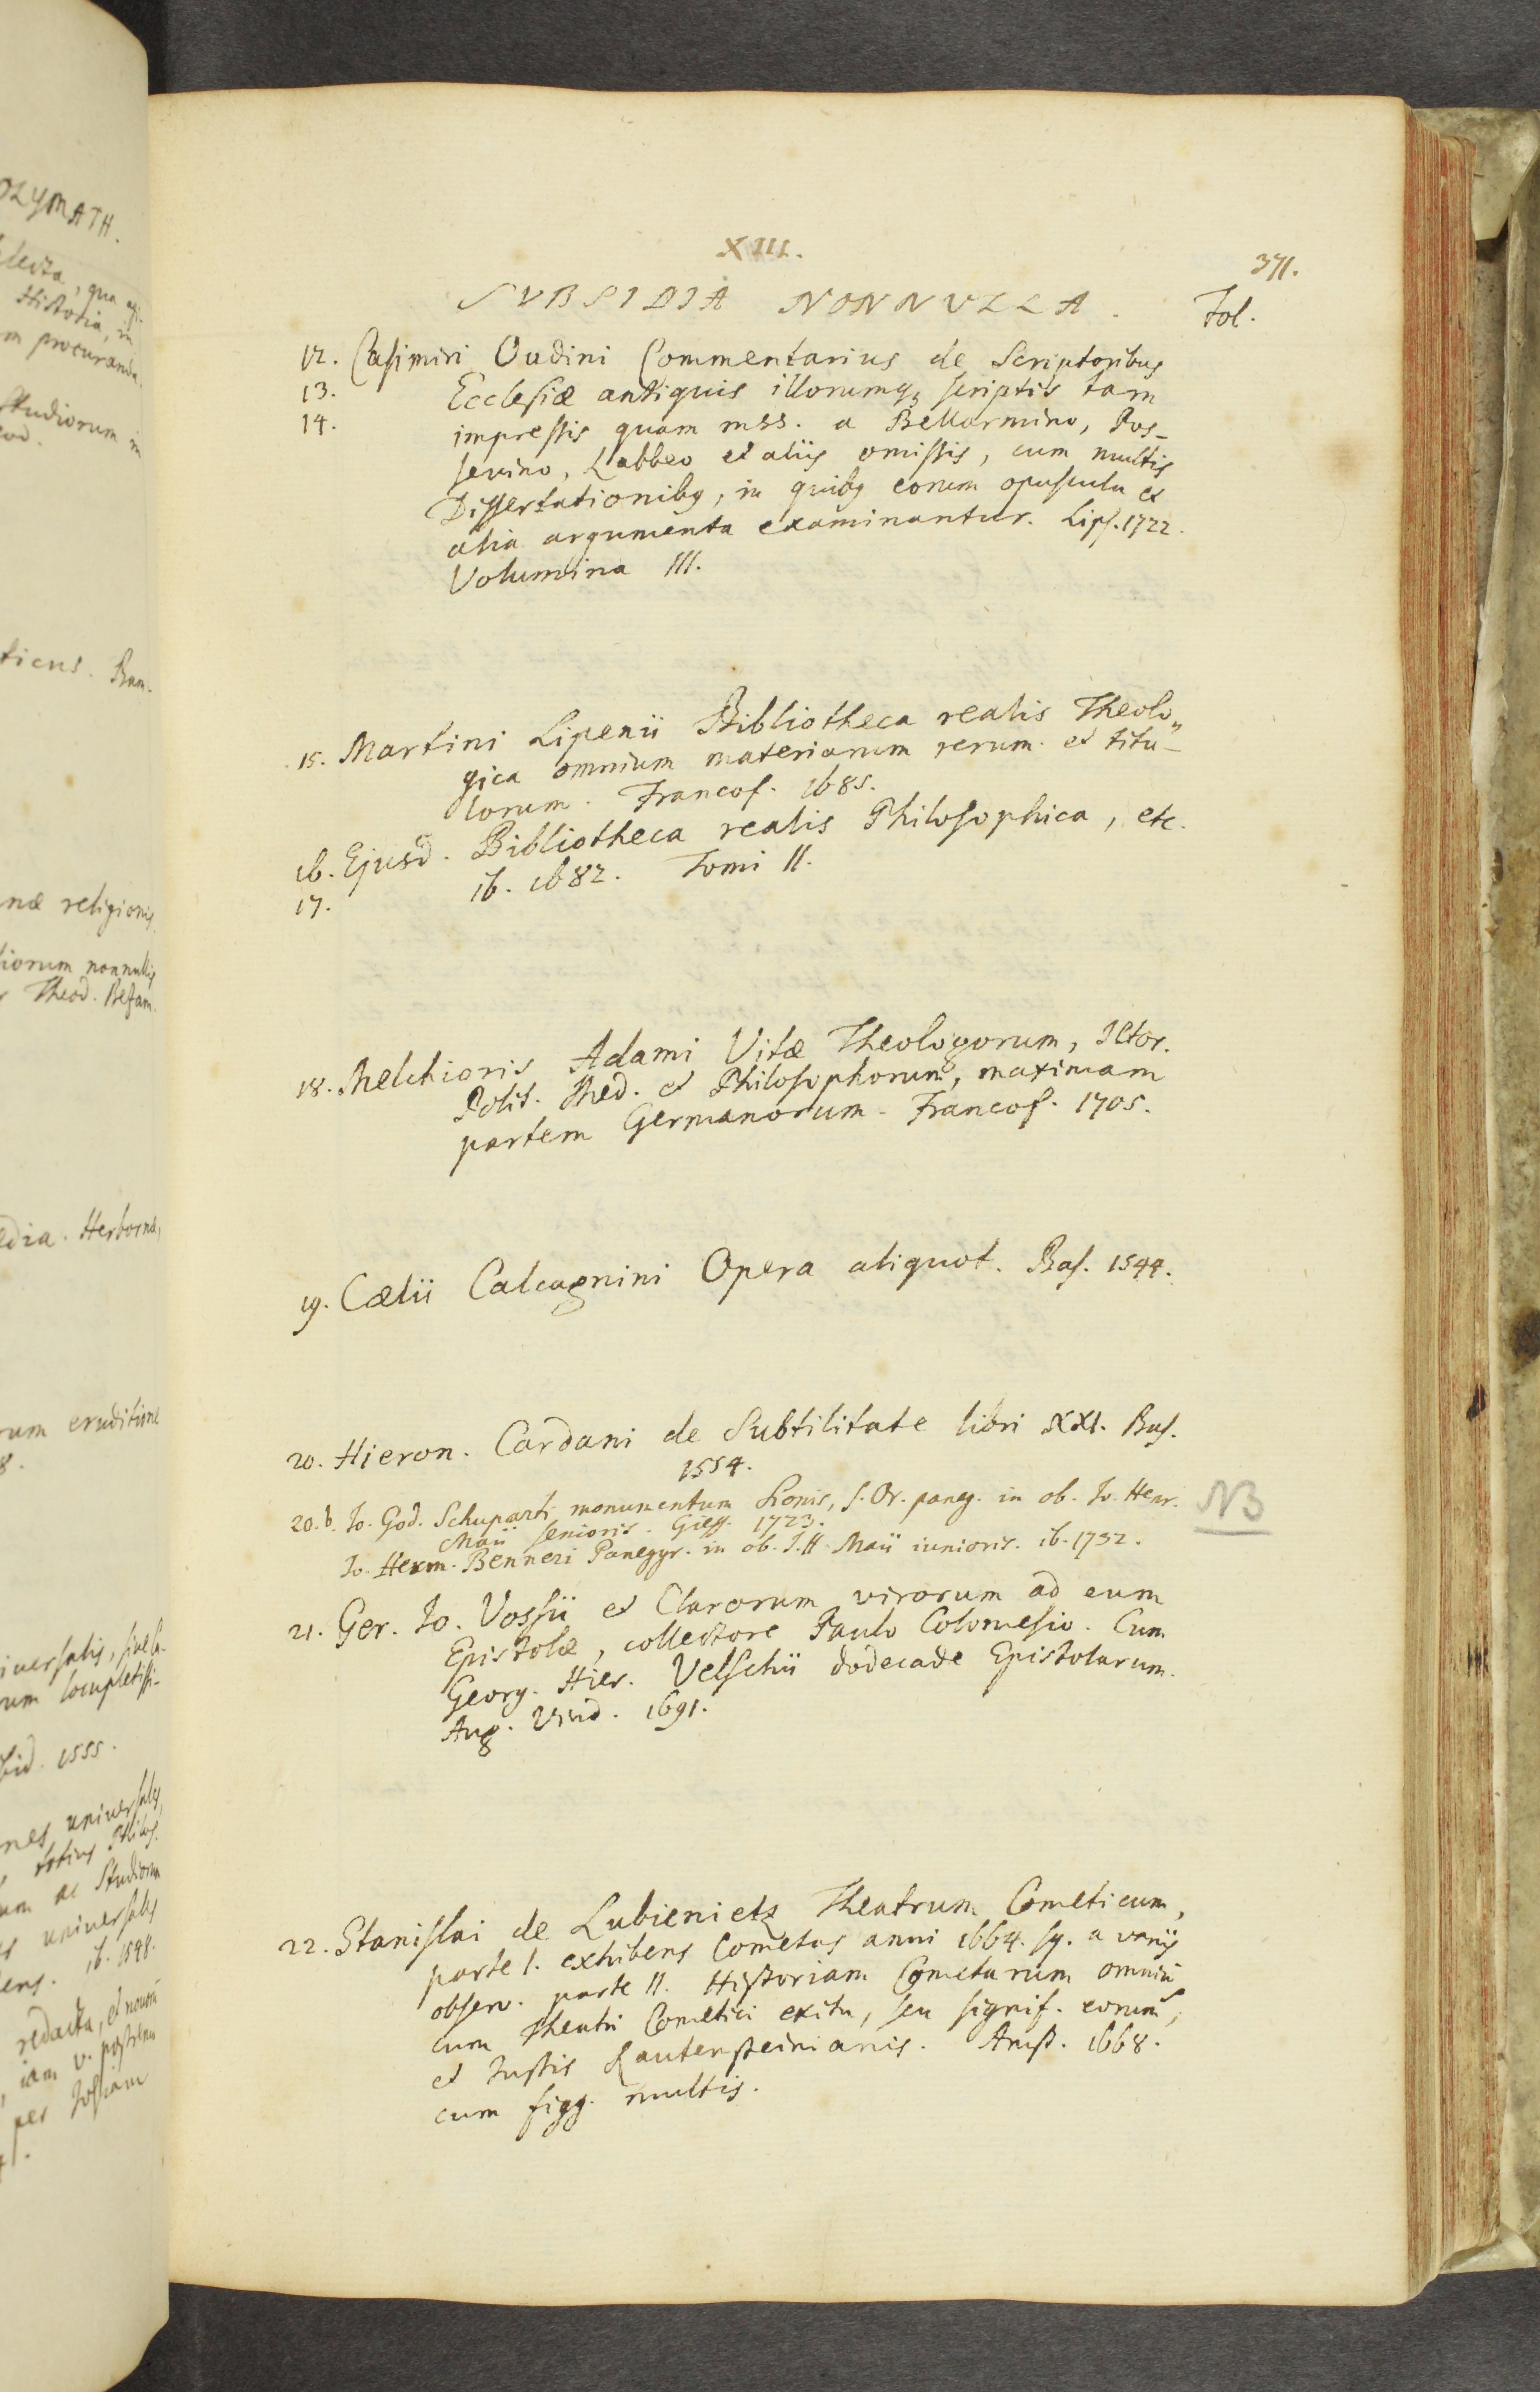 OLYMATH.
lecta, qua
Historia, in
m procuranda.
Studiorum in
ticus. Bam-
næ religionis
iorum nonnullis
Theod. Bezam.
edia. Herbornæ,
rum eruditione
8.
iversalis, sive
rum locupletissi-
ibid. 1555.
nes universales,
totius Philos.
um ac Studiorum
es universales
ib. 1598.
redacta, et
iam v. postremu
per Josiam
XIII.
371.
SVBSIDIA NONNVLLA.
Fol.
12. Casimiri Oudini Commentarius de Scriptoribus
13. Ecclesiæ antiquis illorumqz scriptis tam
14. impressis quam mss. a Bellarmino, Pos-
sevino, Labbeo et aliis omissis, cum multis
Dissertationibz, in quibz eorum opuscula et
alia argumenta examinantur. Lips. 1722.
Volumina III.
15. Martini Lipenii Bibliotheca realis Theolo„
gica omnium materiarum rerum et titu-
lorum. Francof. 1685.
16. Ejusd. Bibliotheca realis Philosophica, etc.
17. ib. 1682. Tomi II.
18. Melchioris Adami Vitæ Theologorum, ICtor.
Polit. Med. et Philosophorum, maximam
partem Germanorum. Francof. 1705.
19. Cælii Calcagnini Opera aliquot. Bas. 1544.
20. Hieron. Cardani de Subtilitate libri XXI. Bas.
1554.
20.b. Io. God. Schuparti monumentum Honis, s. Or. paneg. in ob. Io. Henr.
Maii senioris. Giess. 1723.
Io. Herm. Benneri Panegyr. in ob. I. H. Maii iunioris. ib. 1732.
NB
21. Ger. Io. Vossii et Clarorum virorum ad eum
Epistolæ, collectore Paulo Colomesio. Cum
Georg. Hier. Velschii dodecade Epistolarum.
Aug. Vind. 1691.
22. Stanislai de Lubienietz Theatrum Cometicum,
parte I. exhibens Cometas anni 1664. sq. a variis
observ. parte II. Historiam Cometarum omniū
cum Theatri Cometici exitu, seu signif. eorum,
et Iustis Lautensteinianis. Amst. 1668.
cum figg. multis.